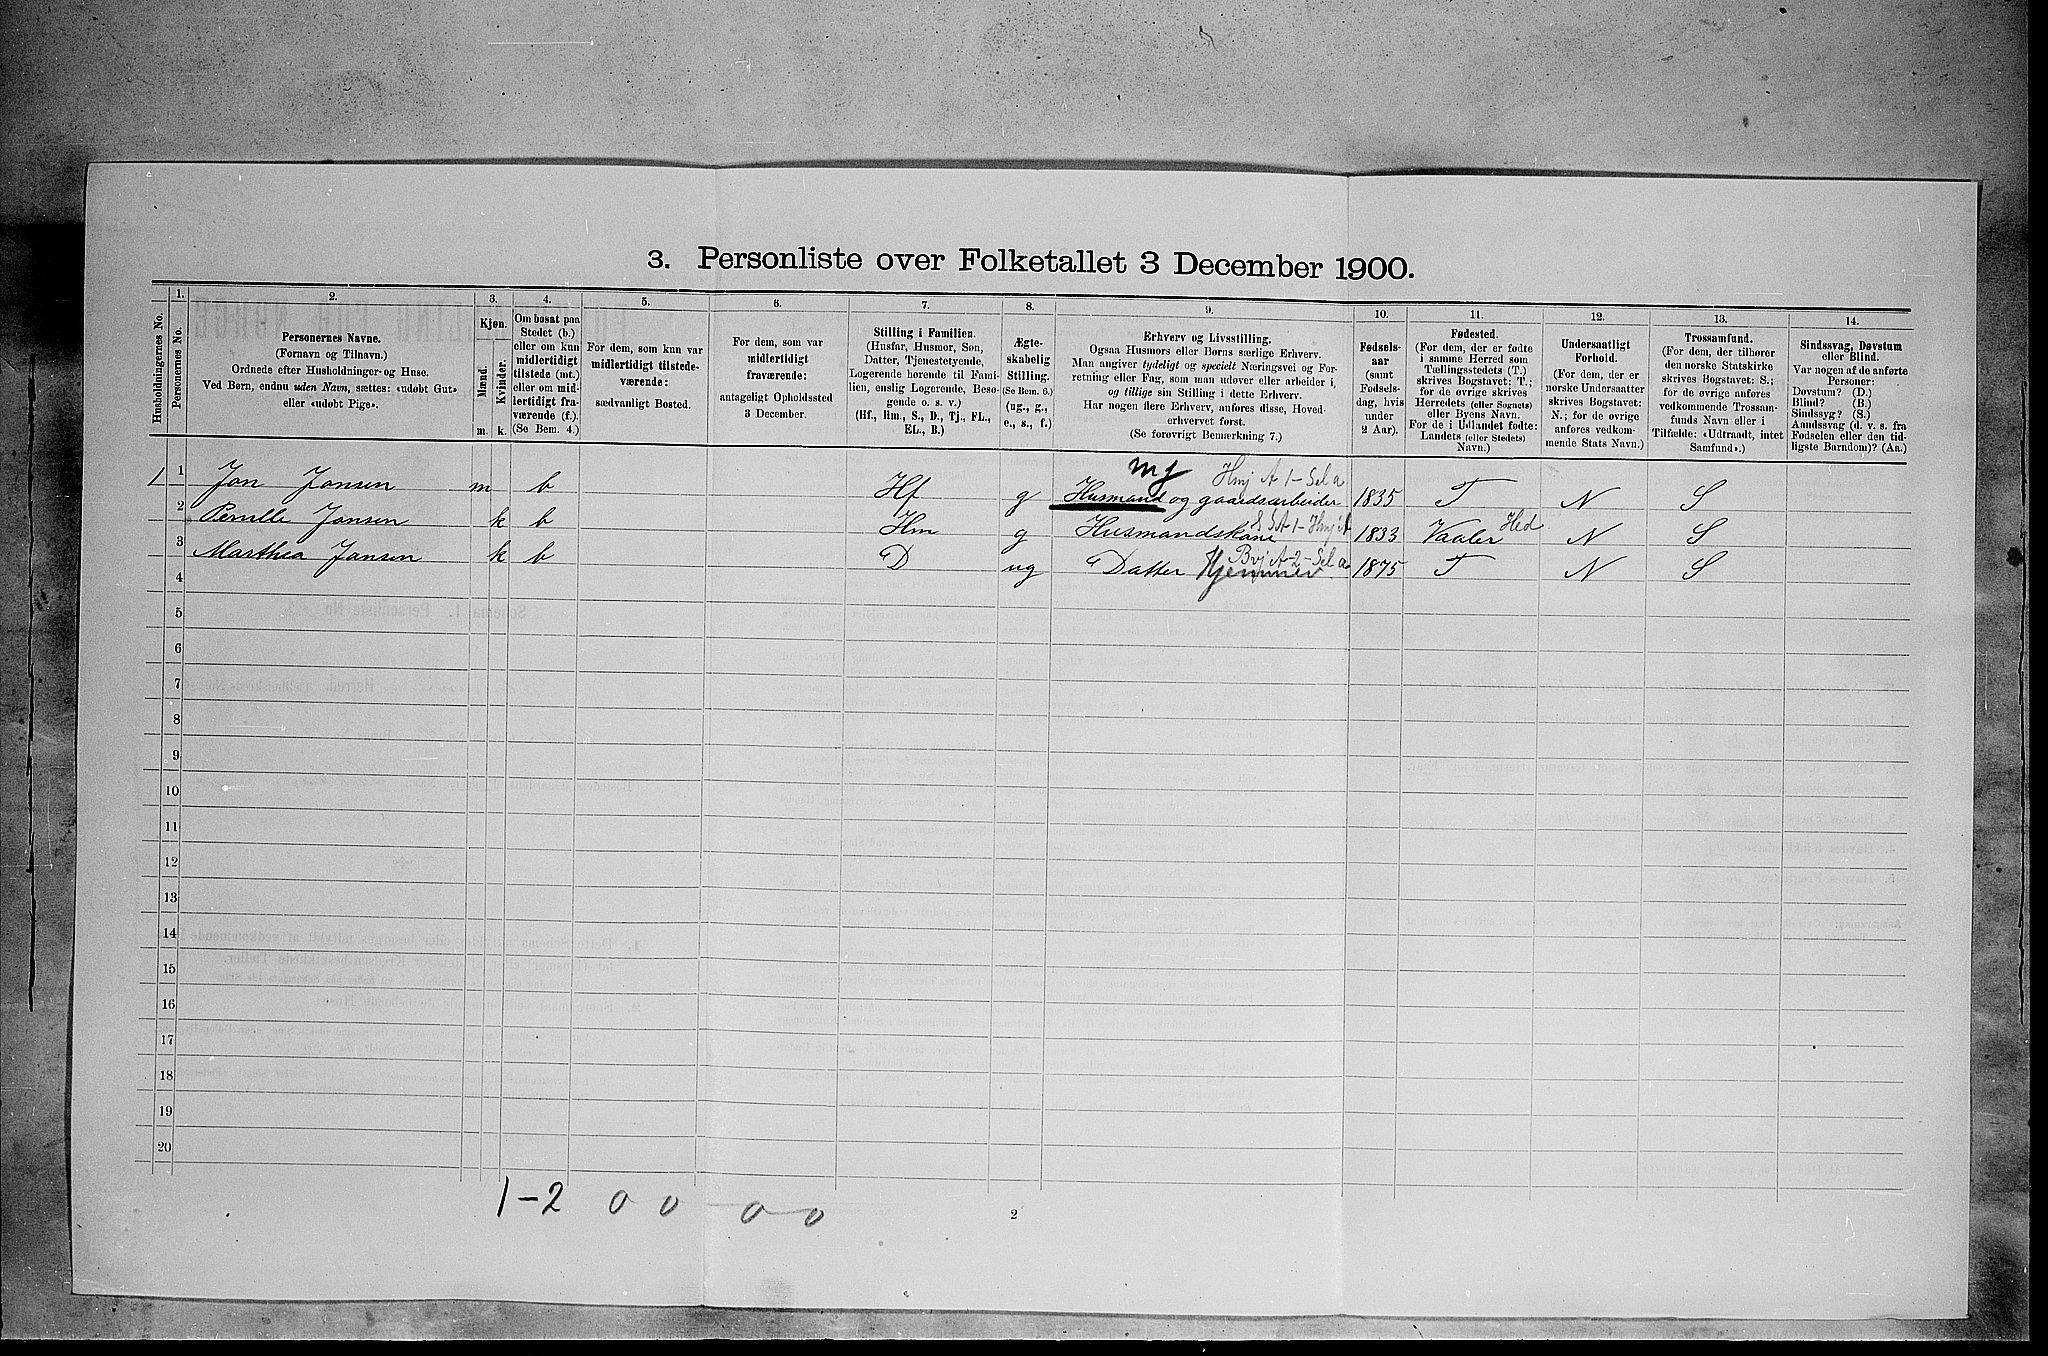 3. Personliste over Folketallet 3 December 1900.
Husholdningernes No.
1.
Personernes No.
2.
Personernes Navne.
(Fornavn og Tilnavn.)
Ordnede efter Husholdninger og Huse.
Ved Børn, endnu uden Navn, sættes: «udøbt Gut»
eller «udøbt Pige».
3.
Kjøn.
Mænd.
Kvinder.
m. k.
4.
Om bosat paa
Stedet (b.)
eller om kun
midlertidigt
tilstede (mt.)
eller om mid-
lertidigt fra-
værende (f.).
(Se Bem. 4.)
5.
For dem, som kun var
midlertidigt tilstede-
værende:
sædvanligt Bosted.
6.
For dem, som var
midlertidigt
fraværende:
antageligt Opholdssted
3 December.
7.
Stilling i Familien.
(Husfar, Husmor, Søn,
Datter, Tjenestetyende,
Logerende hørende til Fami-
lien, enslig Logerende, Besø-
gende o. s. v.)
(Hf., Hm., S., D., Tj., FL.,
EL., B.)
8.
Ægte-
skabelig
Stilling.
(Se Bem. 6.)
(ug., g.,
e., s., f.)
9.
Erhverv og Livsstilling.
Ogsaa Husmors eller Børns særlige Erhverv.
Man angiver tydeligt og specielt Næringsvei og For-
retning eller Fag, som man udøver eller arbeider i,
og tillige sin Stilling i dette Erhverv.
Har nogen flere Erhverv, anføres disse, Hoved-
erhvervet først.
(Se forøvrigt Bemærkning 7.)
10.
Fødsels-
aar
(samt
Fødsels-
dag, hvis
under
2 Aar).
11.
Fødested.
(For dem, der er fødte
i samme Herred som
Tællingsstedets (T.)
skrives Bogstavet: T.;
for de øvrige skrives
Herredets (eller Sognets)
eller Byens Navn.
For de i Udlandet fødte:
Landets (eller Stedets)
Navn.)
12.
Undersaatligt
Forhold.
(For dem, der er
norske Undersaatter
skrives Bogstavet:
N.; for de øvrige
anføres vedkom-
mende Stats Navn.)
13.
Trossamfund.
(For dem, der tilhører
den norske Statskirke
skrives Bogstavet: S.;
for de øvrige anføres
vedkommende Trossam-
funds Navn eller i
Tilfælde: «Udtraadt, intet
Samfund».)
14.
Sindssvag, Døvstum
eller Blind.
Var nogen af de anførte
Personer:
Døvstum? (D.)
Blind? (B.)
Sindssyg? (S.)
Aandssvag (d. v. s. fra
Fødselen eller den tid-
ligste Barndom)? (Aa.)
mg Hmj A 1-Sel a
1 1 Jon Jonsen m b Hf g Husmand og gaardsarbeider 1835 T N S
2 Pernille Jonsen k b Hm g Husmandskone 1833 Vaaler Hed N S
3 Marthea Jonsen k b D ug Datter Hjemmev. Bvj A-2-Sel a 1875 T N S
4
5
6
7
8
9
10
11
12
13
14
15
16
17
18
19
20
1-2 0 0 - 0 0
2